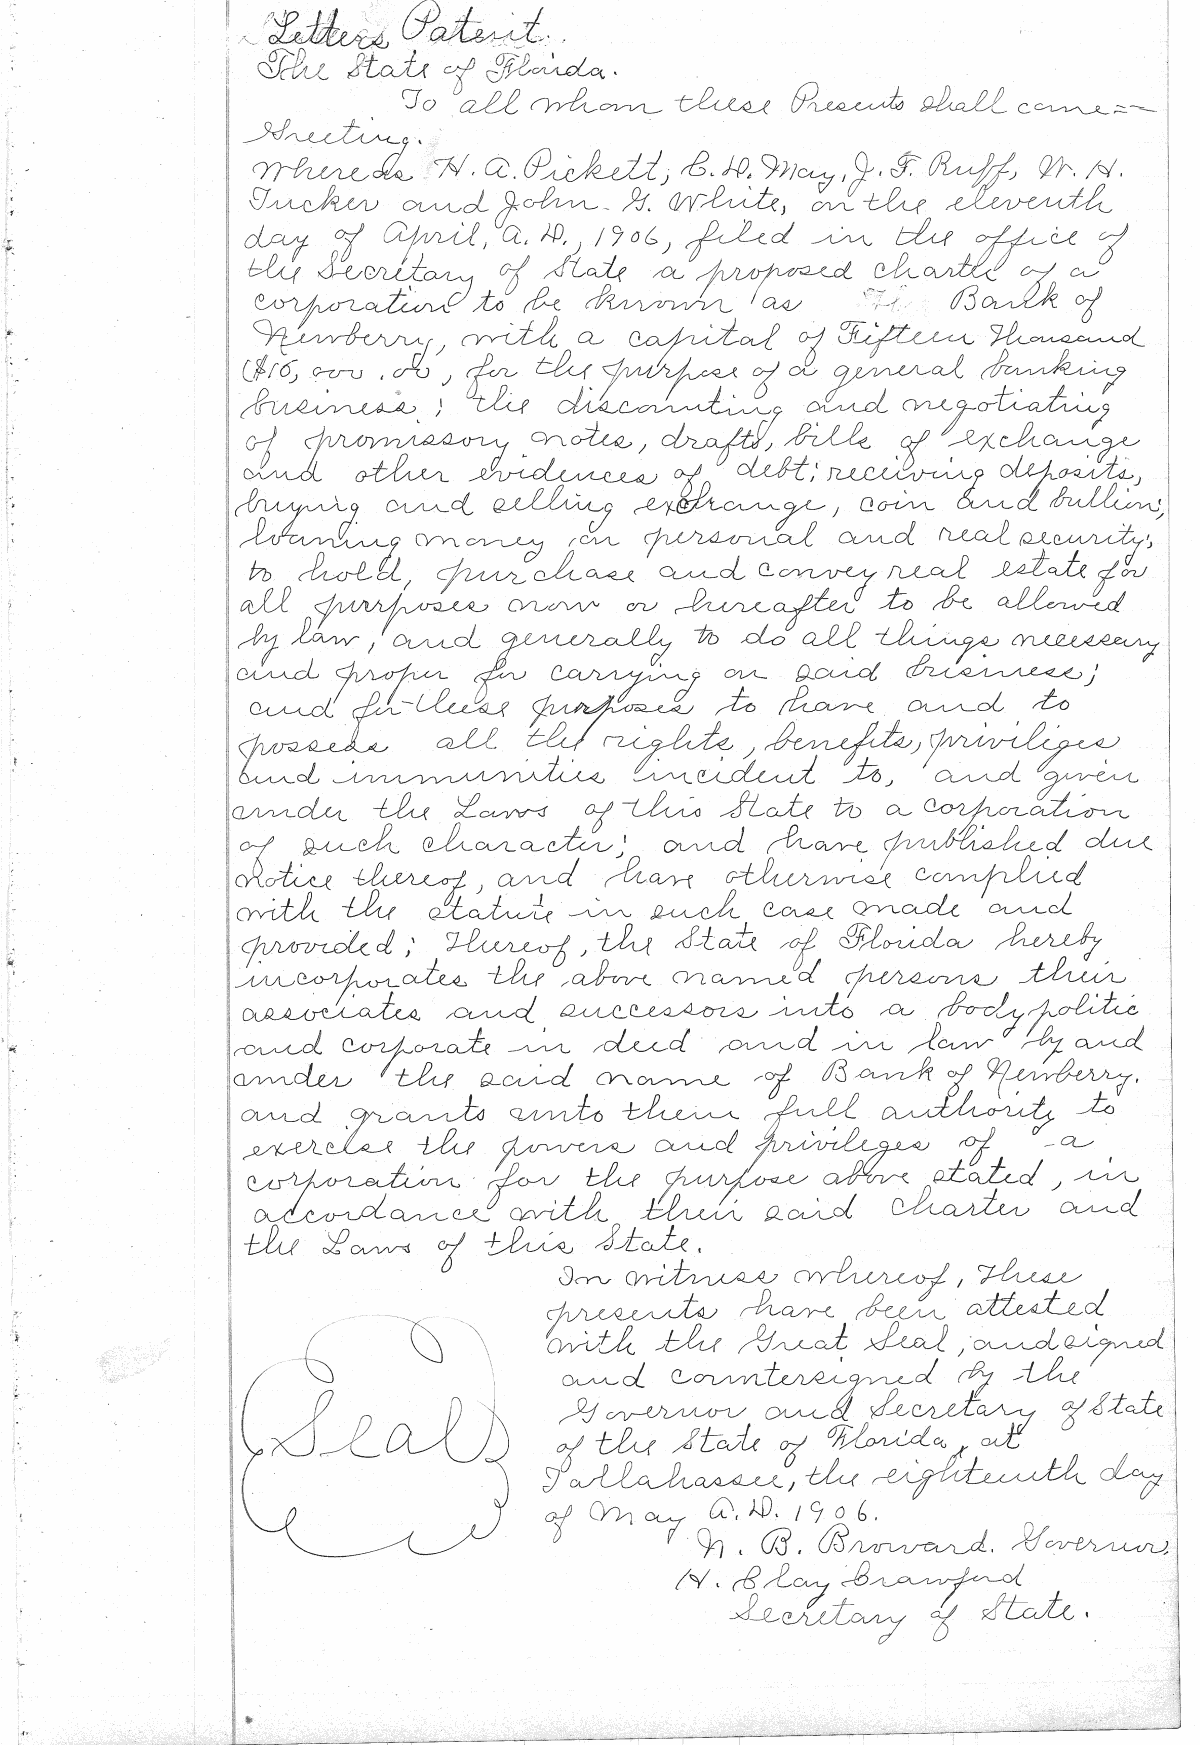 Letters Patent.
The State of Florida.
To all whom these Presents shall come==
Greeting.
Whereas H. A. Pickett, C. H. May, J. F. Ruff, W. H.
Tucker and John G. White, on the eleventh
day of April, A. D., 1906, filed in the office of
the Secretary of State a proposed charter of a
corporation to be known as The Bank of
Newberry, with a capital of Fifteen Thousand
($15,000.00, for the purpose of a general banking
business; the discounting and negotiating
of promissory notes, drafts, bills of exchange
and other evidences of debt; receiving deposits,
buying and selling exchange, coin and bullion;
loaning money on personal and real security;
to hold, purchase and convey real estate for
all purposes now or hereafter to be allowed
by law; and generally to do all things necessary
and proper for carrying on said business;
and for these purposes to have and to
possess all the rights, benefits, priviliges
and immunities incident to, and given
under the Laws of this State to a corporation
of such character; and have published due
notice thereof, and have otherwise complied
with the statute in such case made and
provided; Thereof, the State of Florida hereby
incorporates the above named persons their
associates and successors into a body politic
and corporate in deed and in law by and
under the said name of Bank of Newberry.
and grants unto them full authority to
exercise the powers and privileges of a
corporation for the purpose above stated, in
accordance with their said charter and
the Laws of this State.
In witness whereof, These
presents have been attested
with the Great Seal, and signed
and countersigned by the
Governor and Secretary of State
Seal of the State of Florida, at
Tallahassee, the eighteenth day
of May A. D. 1906.
N. B. Broward. Governor.
H. Clay Crawford
Secretary of State.